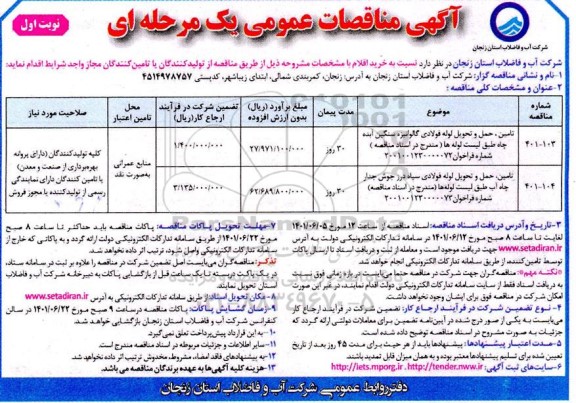 آگهی مناقصات عمومی یک مرحله ای
نوبت اول
شرکت آب و فاضلاب استان زنجان
شرکت آب و فاضلاب استان زنجان در نظر دارد نسبت به خرید اقلام با مشخصات مشروحه ذیل از طریق مناقصه از تولیدکنندگان یا تامین‌کنندگان مجاز واجد شرایط اقدام نماید:
۱-نام و نشانی مناقصه گزار: شرکت آب و فاضلاب استان زنجان به آدرس: زنجان، کمربندی شمالی، ابتدای زیباشهر، کدپستی ۴۵۱۴۹۷۸۷۵۷
۲-عنوان و مشخصات کلی مناقصه :
شماره مناقصه
موضوع
مدت پیمان
مبلغ برآورد (ریال) بدون ارزش افزوده
تضمین شرکت در فرآیند ارجاع کار(ریال)
محل تامین اعتبار
صلاحیت مورد نیاز
۴۰۱-۱۰۳
تامین، حمل و تحویل لوله فولادی گالوانیزه سنگین آبده
چاه طبق لیست لوله ها ( مندرج در اسناد مناقصه )
۳۰ روز
۲۷/۹۷۱/۱۰۰/۰۰۰
۱/۴۰۰/۰۰۰/۰۰۰
منابع عمرانی
به‌صورت نقد
کلیه تولیدکنندگان (دارای پروانه
بهره‌برداری از صنعت و معدن)
یا تامین کنندگان دارای نمایندگی
رسمی از تولیدکننده یا مجوز فروش
۴۰۱-۱۰۴
تامین، حمل و تحویل لوله فولادی سیاه درز جوش جدار
چاه آب طبق لیست لوله‌ها (مندرج در اسناد مناقصه)
۳۰ روز
۶۲/۶۸۹/۸۰۰/۰۰۰
۳/۱۳۵/۰۰۰/۰۰۰
۳-تاریخ و آدرس دریافت اسناد مناقصه: اسناد مناقصه از ساعت ۱۲ مورخ ۱۴۰۱/۰۶/۰۵
لغایت تا ساعت ۸ صبح مورخ ۱۴۰۱/۰۶/۱۲ در سامانه تدارکات الکترونیکی دولت به آدرس
www.setadiran.ir جهت دریافت موجود است و معامله از ثبت و دریافت اسناد تا ارسال پاکات
توسط تامین کننده، از طریق سامانه تدارکات الکترونیکی انجام خواهد شد.
*نکته مهم:* مناقصه‌گران جهت شرکت در مناقصه حتما می‌بایست در بازه زمانی فوق نسبت
به دریافت اسناد فقط از سایت سامانه تدارکات الکترونیکی دولت اقدام نمایند، در غیر این صورت
امکان شرکت در مناقصه فوق برای ایشان وجود نخواهد داشت.
۴- نوع تضمین شرکت در فرآیند ارجاع کار: تضمین شرکت در فرآیند ارجاع کار
می‌بایست به یکی از صور درج شده در آیین‌نامه تضمین برای معاملات دولتی ارائه گردد که
جزئیات به صورت مشروح در اسناد مناقصه توضیح داده شده است.
۵-مدت اعتبار پیشنهادها: پیشنهادها باید از هر حیث برای مدت ۴۵ روز بعد از تاریخ
تعیین شده برای تسلیم پیشنهادها معتبر بوده و به همان میزان قابل تمدید باشند.
۶-سایت‌های ثبت آگهی: http://iets.mporg.ir ،http://tender.nww.ir
۷-مهلت تحویل پاکات مناقصه: پاکات مناقصه باید حداکثر تا ساعت ۸ صبح
مورخ ۱۴۰۱/۰۶/۲۲ از طریق سامانه تدارکات الکترونیکی دولت ارائه گردد و به پاکاتی که خارج از
سامانه تدارکات الکترونیکی واصل شود، ترتیب اثر داده نخواهد شد.
تذکر: مناقصه‌گران می‌بایست اصل تضمین شرکت در مناقصه را علاوه بر ثبت در سامانه ستاد،
در یک پاکت دربسته تا یک ساعت قبل از بازگشایی پاکات به دبیرخانه شرکت آب و فاضلاب
استان تحویل نمایند.
۸- مکان تحویل اسناد: از طریق سامانه تدارکات الکترونیکی به آدرس www.setadiran.ir
۹-زمان گشایش پاکات: پاکات مناقصه در ساعت ۹ صبح مورخ ۱۴۰۱/۰۶/۲۲ در سالن
کنفرانس شرکت آب و فاضلاب استان زنجان بازگشایی خواهد شد.
۱۰-به این قرارداد پیش‌پرداخت تعلق نمی‌گیرد.
۱۱-سایر اطلاعات و جزئیات مربوطه در اسناد مناقصه مندرج است.
۱۲-به پیشنهادهای فاقد امضاء، مشروط، مخدوش ترتیب اثر داده نخواهد شد.
۱۳-هزینه کلیه آگهی‌ها به عهده برندگان مناقصه می‌باشد.
دفتر روابط عمومی شرکت آب و فاضلاب استان زنجان